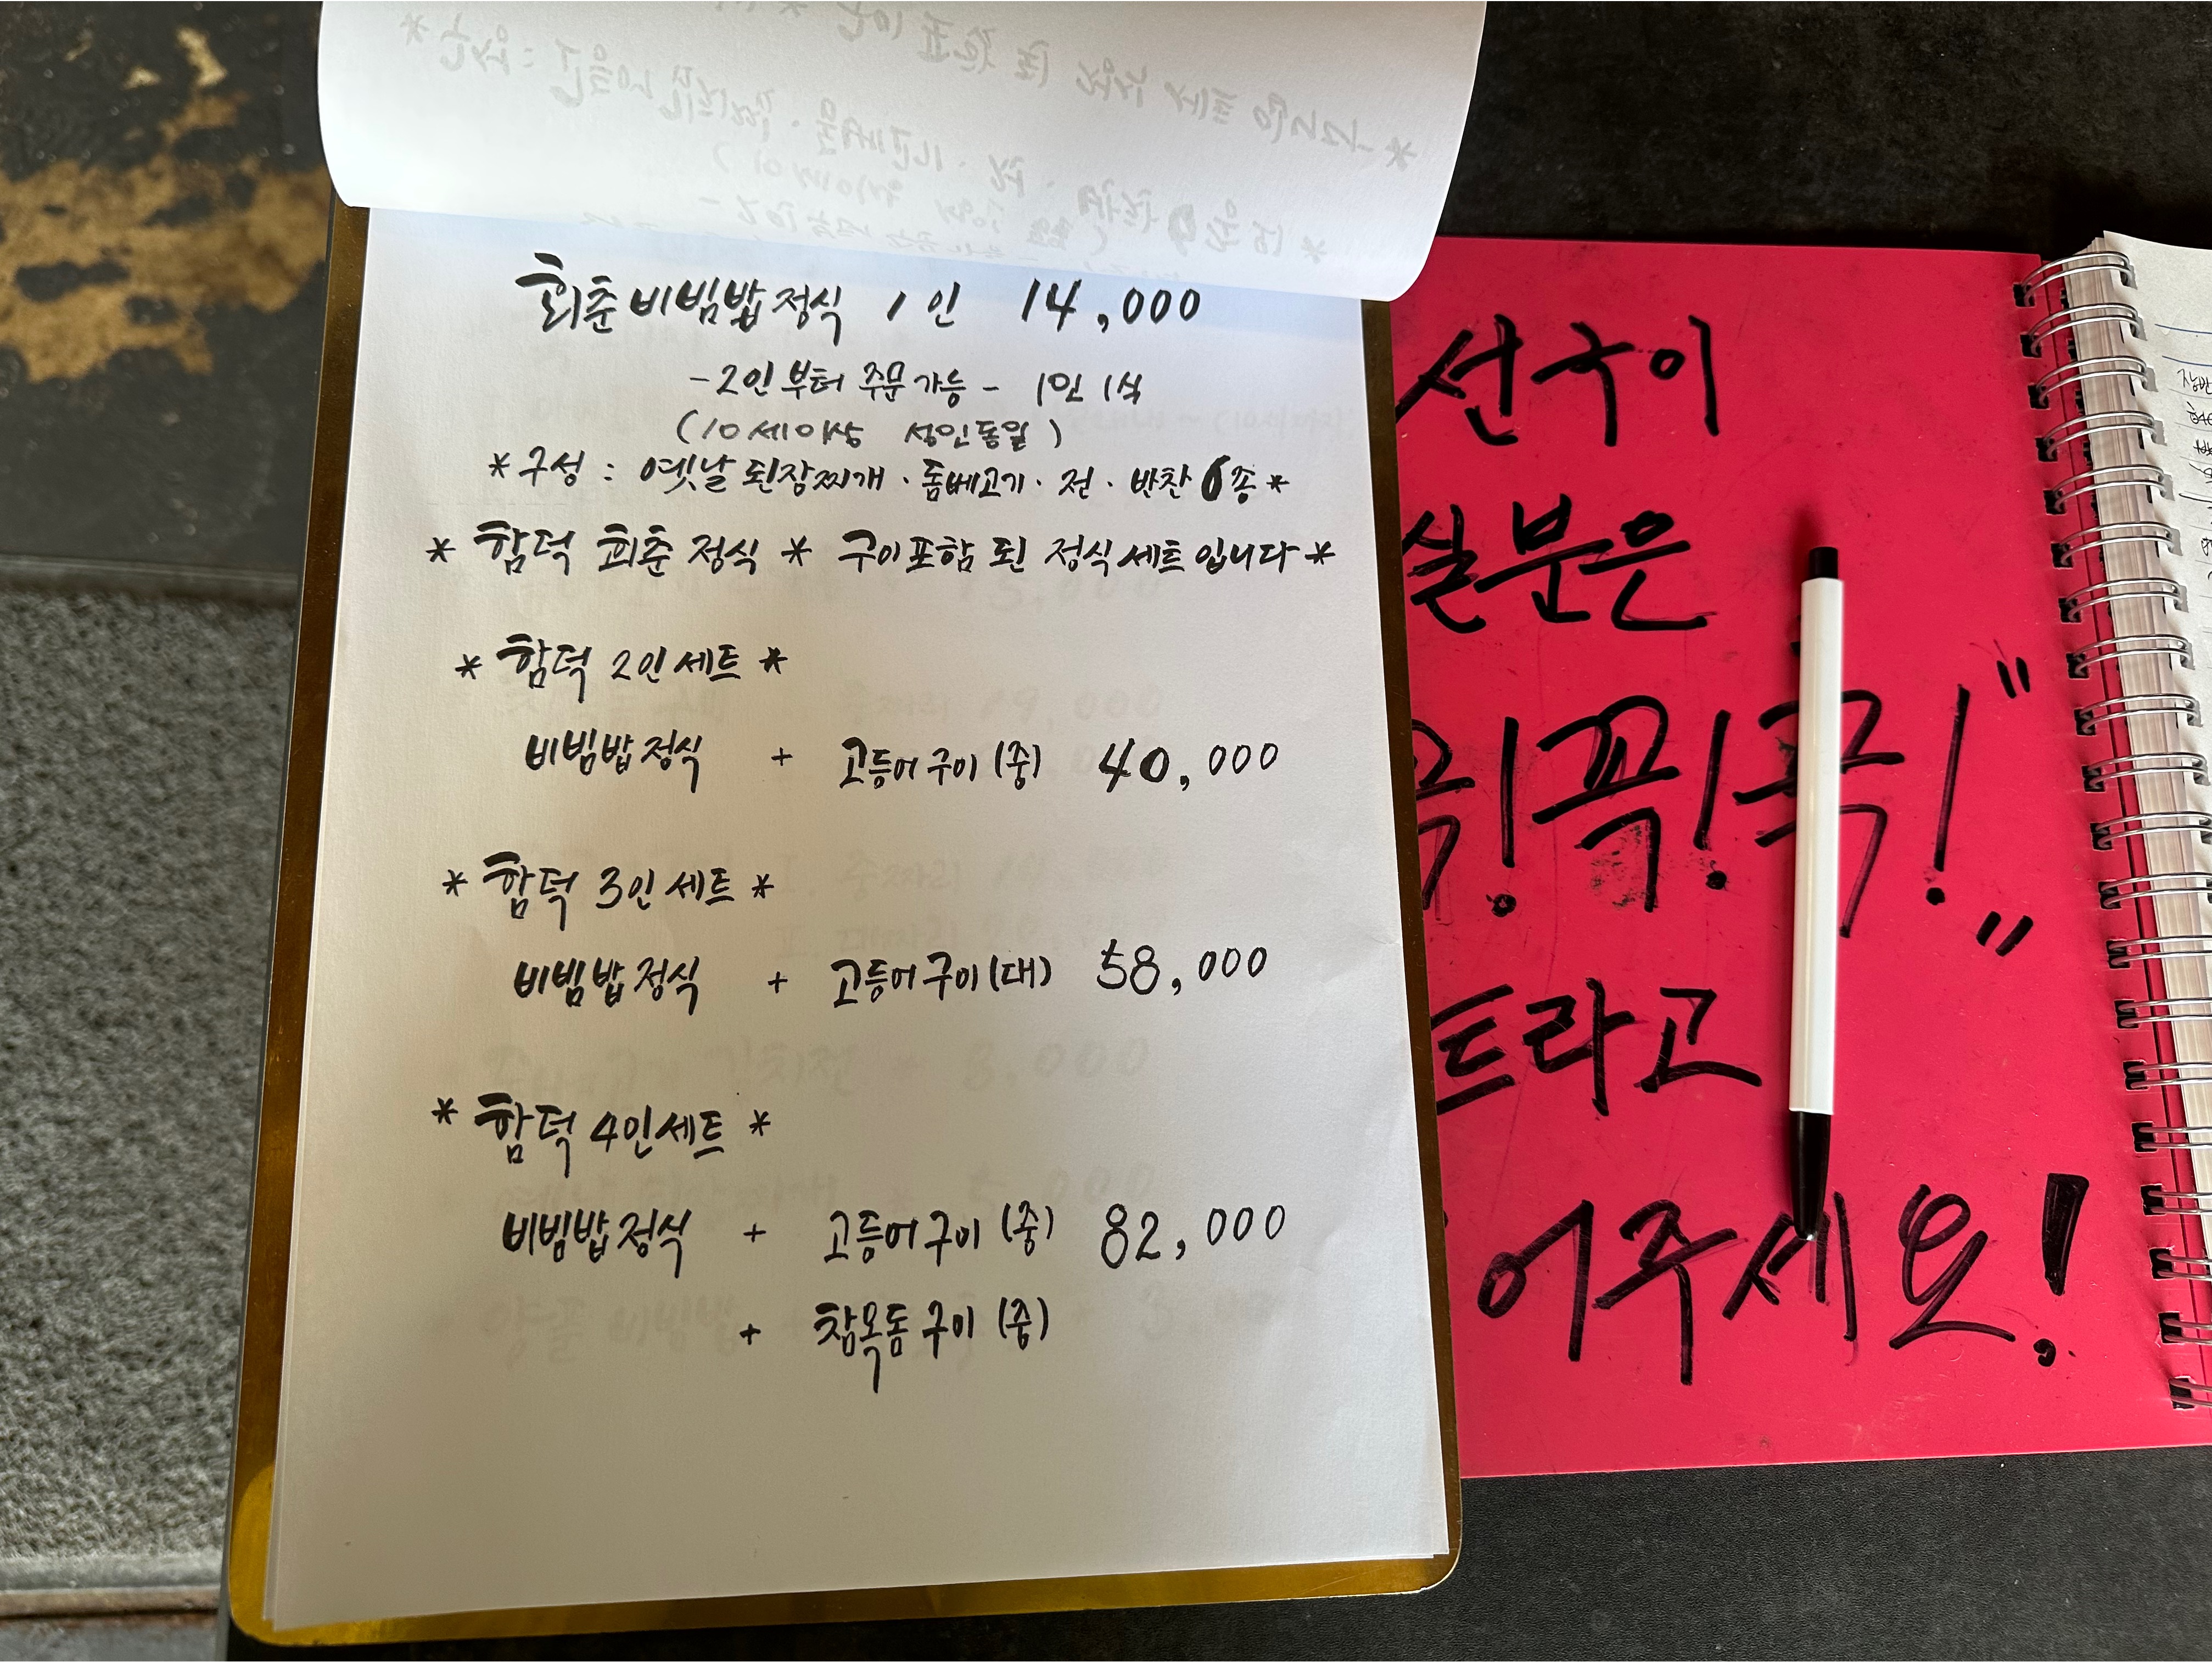 회춘비빔밥정식 1인 14,000
-2인부터 주문가능- 1인 1식
(10세이상 성인동일)
*구성 : 옛날된장찌개 · 돔베고기 · 전 · 반찬 6종*
* 함덕 회춘 정식 * 구이포함 된 정식세트입니다*
* 함덕 2인세트 *
비빔밥정식 + 고등어구이(중) 40,000
* 함덕 3인세트 *
비빔밥정식 + 고등어구이(대) 58,000
* 함덕 4인세트 *
비빔밥정식 + 고등어구이(중) 82,000
+ 참옥돔구이(중)
선구이
실분은
꼭!꼭!꼭!"
트라고
어주세요!